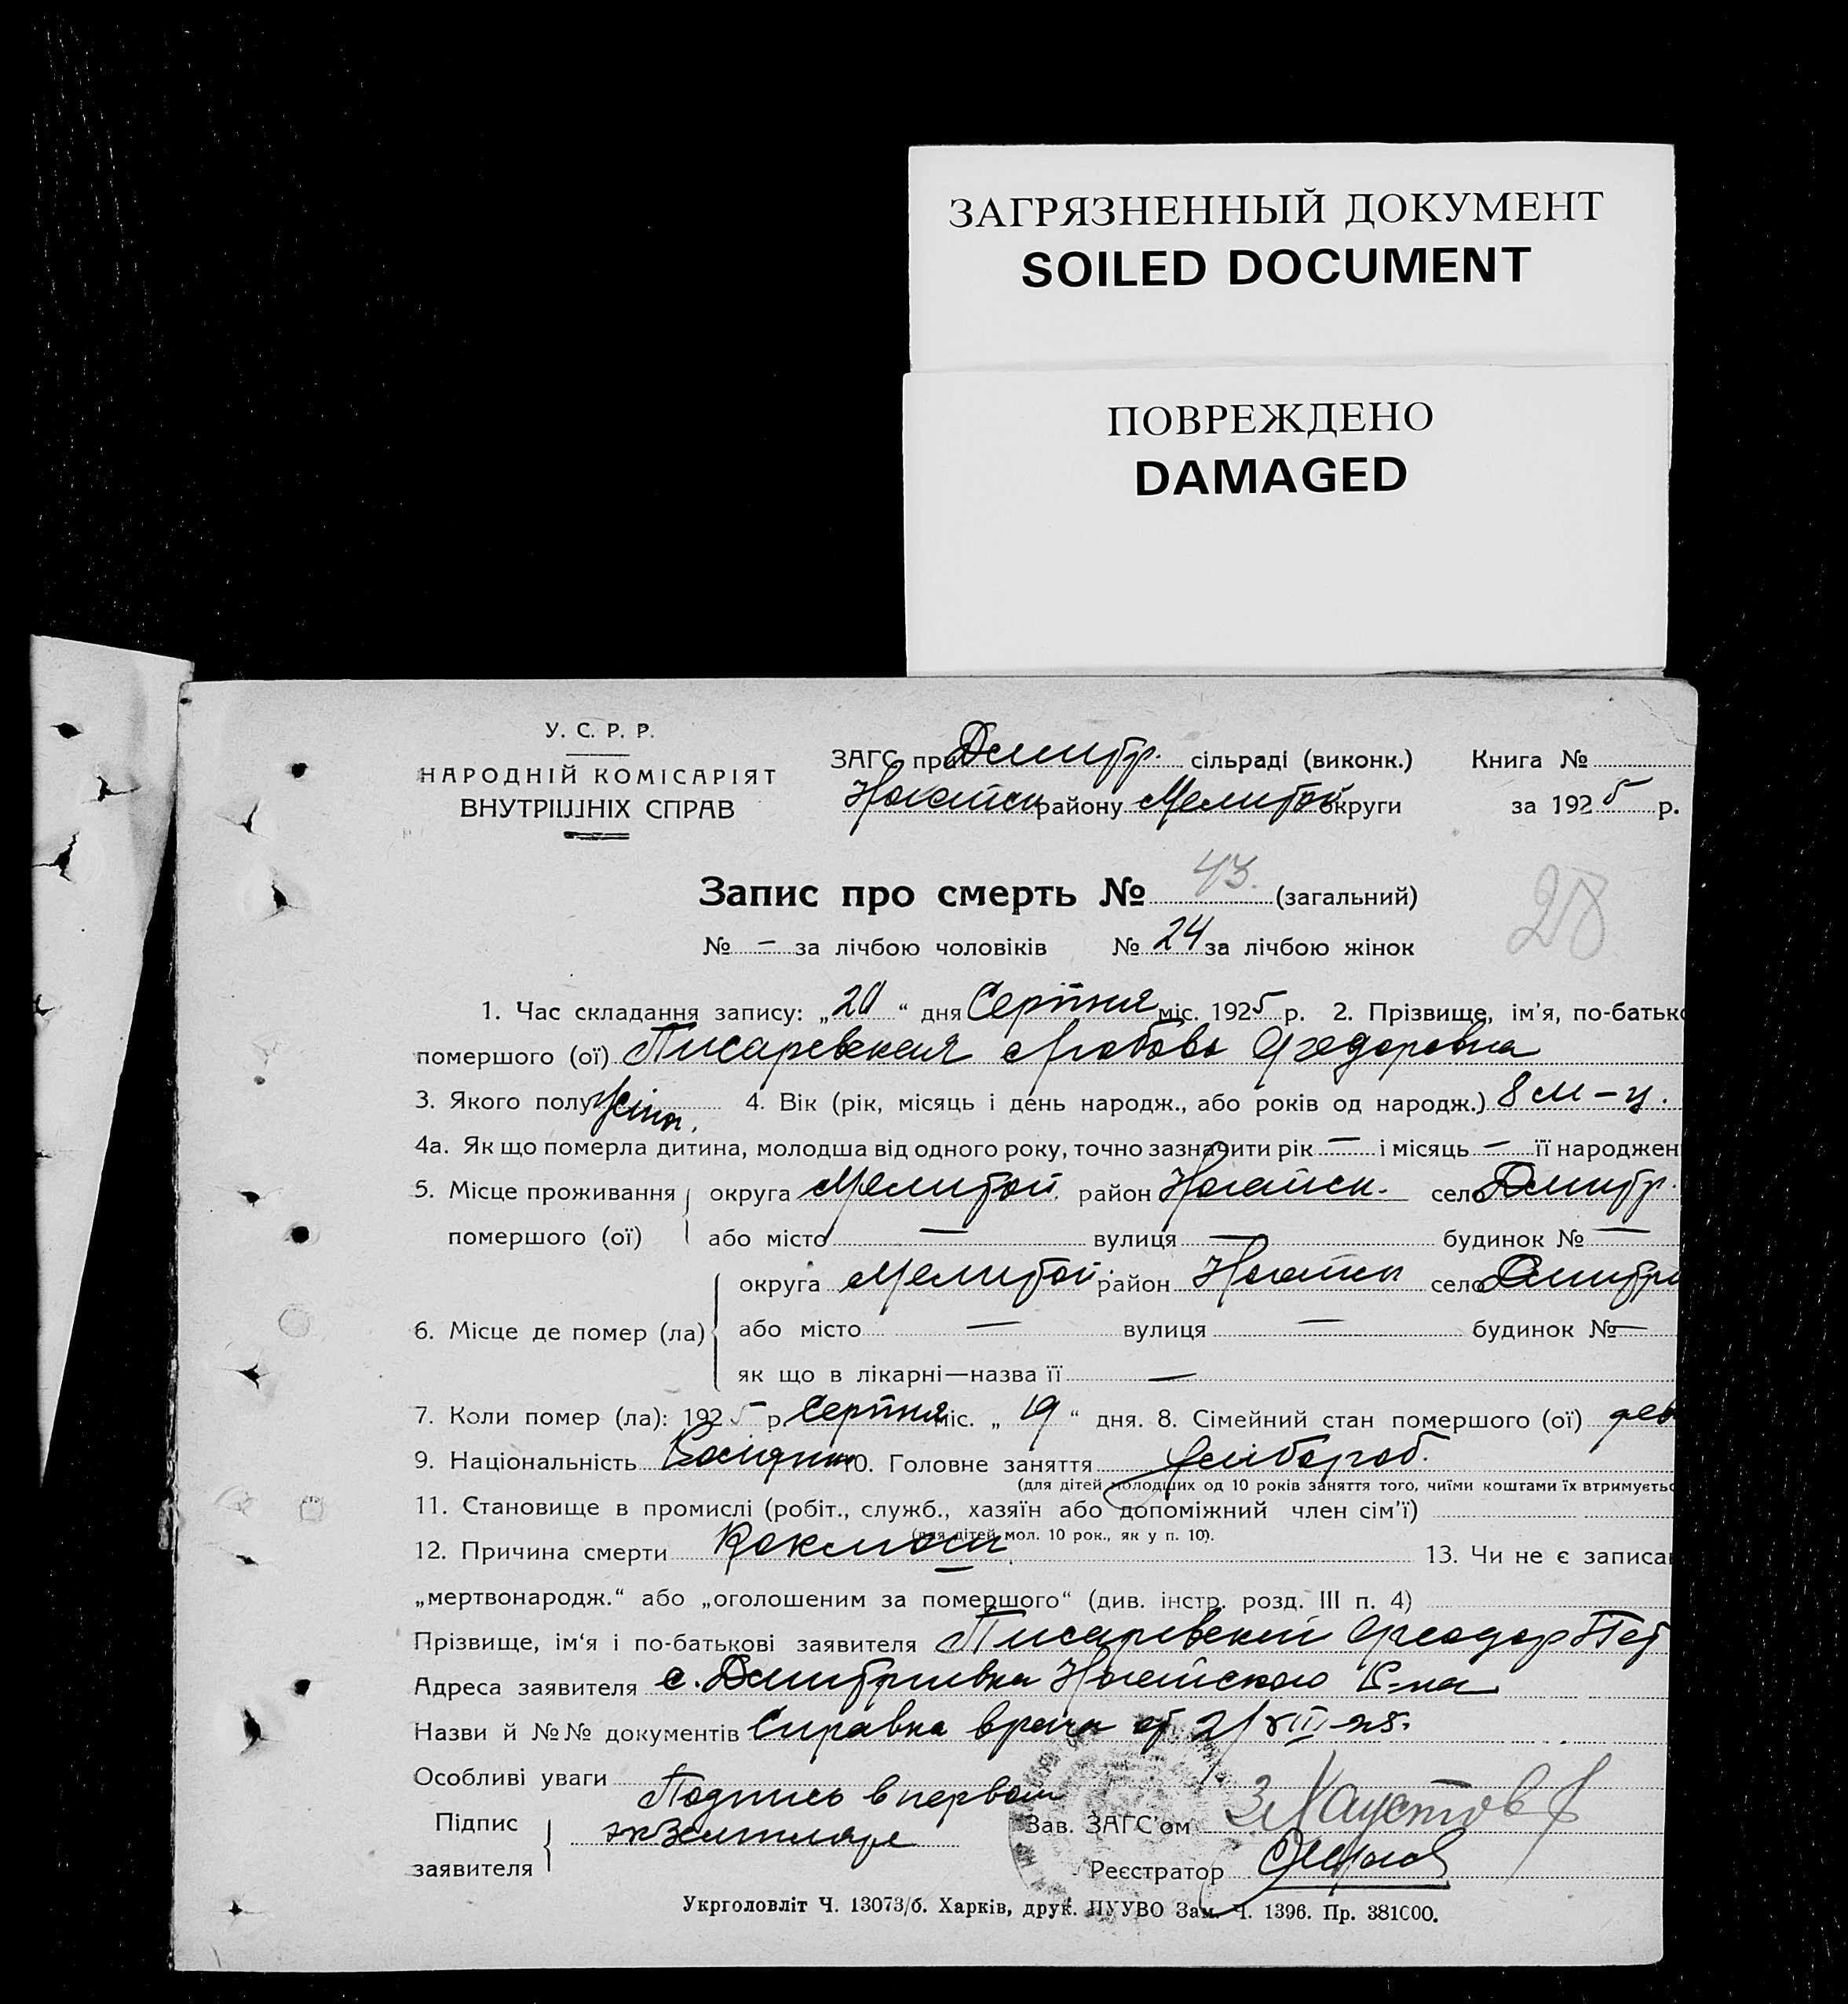 ЗАГРЯЗНЕННЫЙ ДОКУМЕНТ
SOILED DOCUMENT
ПОВРЕЖДЕНО
DAMAGED
У. С. Р. Р.
НАРОДНІЙ КОМІСАРІЯТ
ВНУТРІШНІХ СПРАВ
ЗАГС при Дмитр. сільраді (виконк.) Книга №
Ногайськ району Мелитоп округи за 1925 р.
Запис про смерть № 43. (загальний)
28
№ — за лічбою чоловіків № 24 за лічбою жінок
1. Час складання запису: „ “ дня Серпня міс. 1925 р. 2. Прізвище, ім'я, по-батько
помершого (ої) Писаревская Любовь Федоровна
3. Якого полу жіноч. 4. Вік (рік, місяць і день народж., або років од народж.) 8 м-ц.
4а. Як що померла дитина, молодша від одного року, точно зазначити рік — і місяць — її народжен
5. Місце проживання помершого (ої) округа Мелитоп. район Ногайськ. село Дмитр.
або місто — вулиця — будинок № —
6. Місце де помер (ла) округа Мелитоп. район Ногайськ село Дмитри
або місто — вулиця — будинок № —
як що в лікарні—назва її —
7. Коли помер (ла): 1925 р. Серпня міс. „ 19 “ дня. 8. Сімейний стан помершого (ої)
9. Національність 10. Головне заняття хлібороб.
(для дітей молодших од 10 років заняття того, чиїми коштами їх втримуєтьс
11. Становище в промислі (робіт., служб., хазяїн або допоміжний член сім'ї)
(для дітей мол. 10 рок., як у п. 10).
12. Причина смерти Коклюш 13. Чи не є записан
„мертвонародж.“ або „оголошеним за помершого“ (див. інстр. розд. III п. 4)
Прізвище, ім'я і по-батькові заявителя Писаревский Феодор Пет
Адреса заявителя с. Дмитривка Ногайского Р-на
Назви й №№ документів Справка врача от 2/VIII-25.
Особливі уваги
Підпис заявителя Подпись в первом экземпляре
Зав. ЗАГС'ом Хаустов
Реєстратор
Укрголовліт Ч. 13073/б. Харків, друк. ПУУВО Зам. Ч. 1396. Пр. 381000.